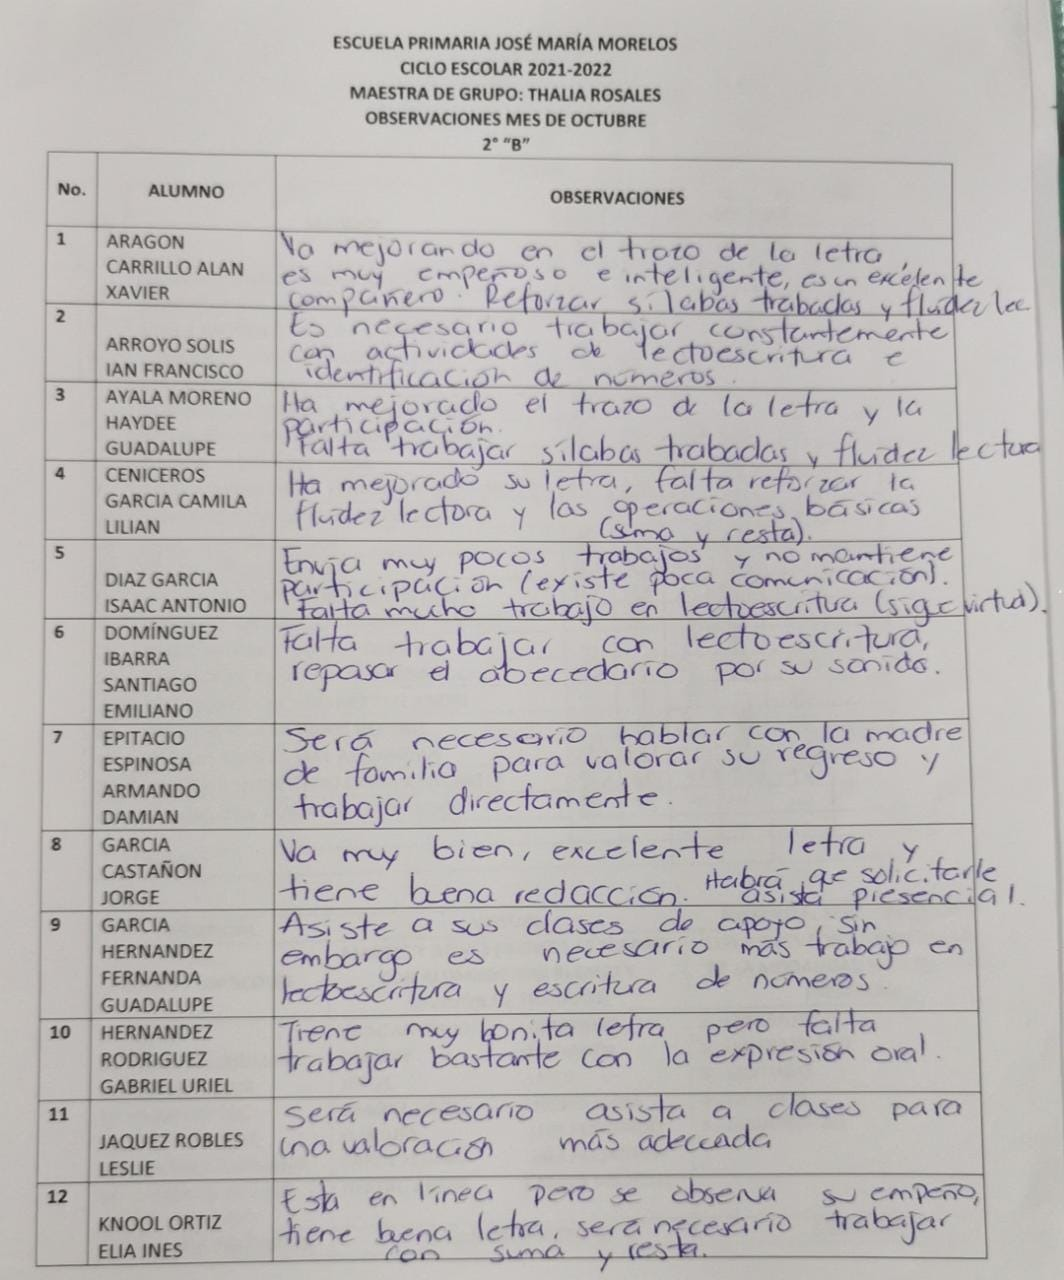 ESCUELA PRIMARIA JOSÉ MARÍA MORELOS
CICLO ESCOLAR 2021-2022
MAESTRA DE GRUPO: THALIA ROSALES
OBSERVACIONES MES DE OCTUBRE
2° “B”
No. ALUMNO OBSERVACIONES
1
ARAGON
CARRILLO ALAN
XAVIER
Va mejorando en el trazo de la letra,
es muy empeñoso e inteligente, es un excelente
compañero. Reforzar sílabas trabadas y fluidez lec
2
ARROYO SOLIS
IAN FRANCISCO
Es necesario trabajar constantemente
con actividades de lectoescritura e
identificación de números.
3
AYALA MORENO
HAYDEE
GUADALUPE
Ha mejorado el trazo de la letra y la
participación.
Falta trabajar sílabas trabadas y fluidez lectura
4
CENICEROS
GARCIA CAMILA
LILIAN
Ha mejorado su letra, falta reforzar la
fluidez lectora y las operaciones básicas
(suma y resta).
5
DIAZ GARCIA
ISAAC ANTONIO
Envía muy pocos trabajos y no mantiene
participación (existe poca comunicación).
Falta mucho trabajo en lectoescritura (sigue virtual).
6
DOMÍNGUEZ
IBARRA
SANTIAGO
EMILIANO
Falta trabajar con lectoescritura,
repasar el abecedario por su sonido.
7
EPITACIO
ESPINOSA
ARMANDO
DAMIAN
Será necesario hablar con la madre
de familia para valorar su regreso y
trabajar directamente.
8
GARCIA
CASTAÑON
JORGE
Va muy bien, excelente letra y
tiene buena redacción. Habrá que solicitarle
asista presencial.
9
GARCIA
HERNANDEZ
FERNANDA
GUADALUPE
Asiste a sus clases de apoyo, sin
embargo es necesario más trabajo en
lectoescritura y escritura de números.
10
HERNANDEZ
RODRIGUEZ
GABRIEL URIEL
Tiene muy bonita letra pero falta
trabajar bastante con la expresión oral.
11
JAQUEZ ROBLES
LESLIE
Será necesario asista a clases para
una valoración más adecuada
12
KNOOL ORTIZ
ELIA INES
Esta en línea pero se observa su empeño,
tiene buena letra, será necesario trabajar
con suma y resta.